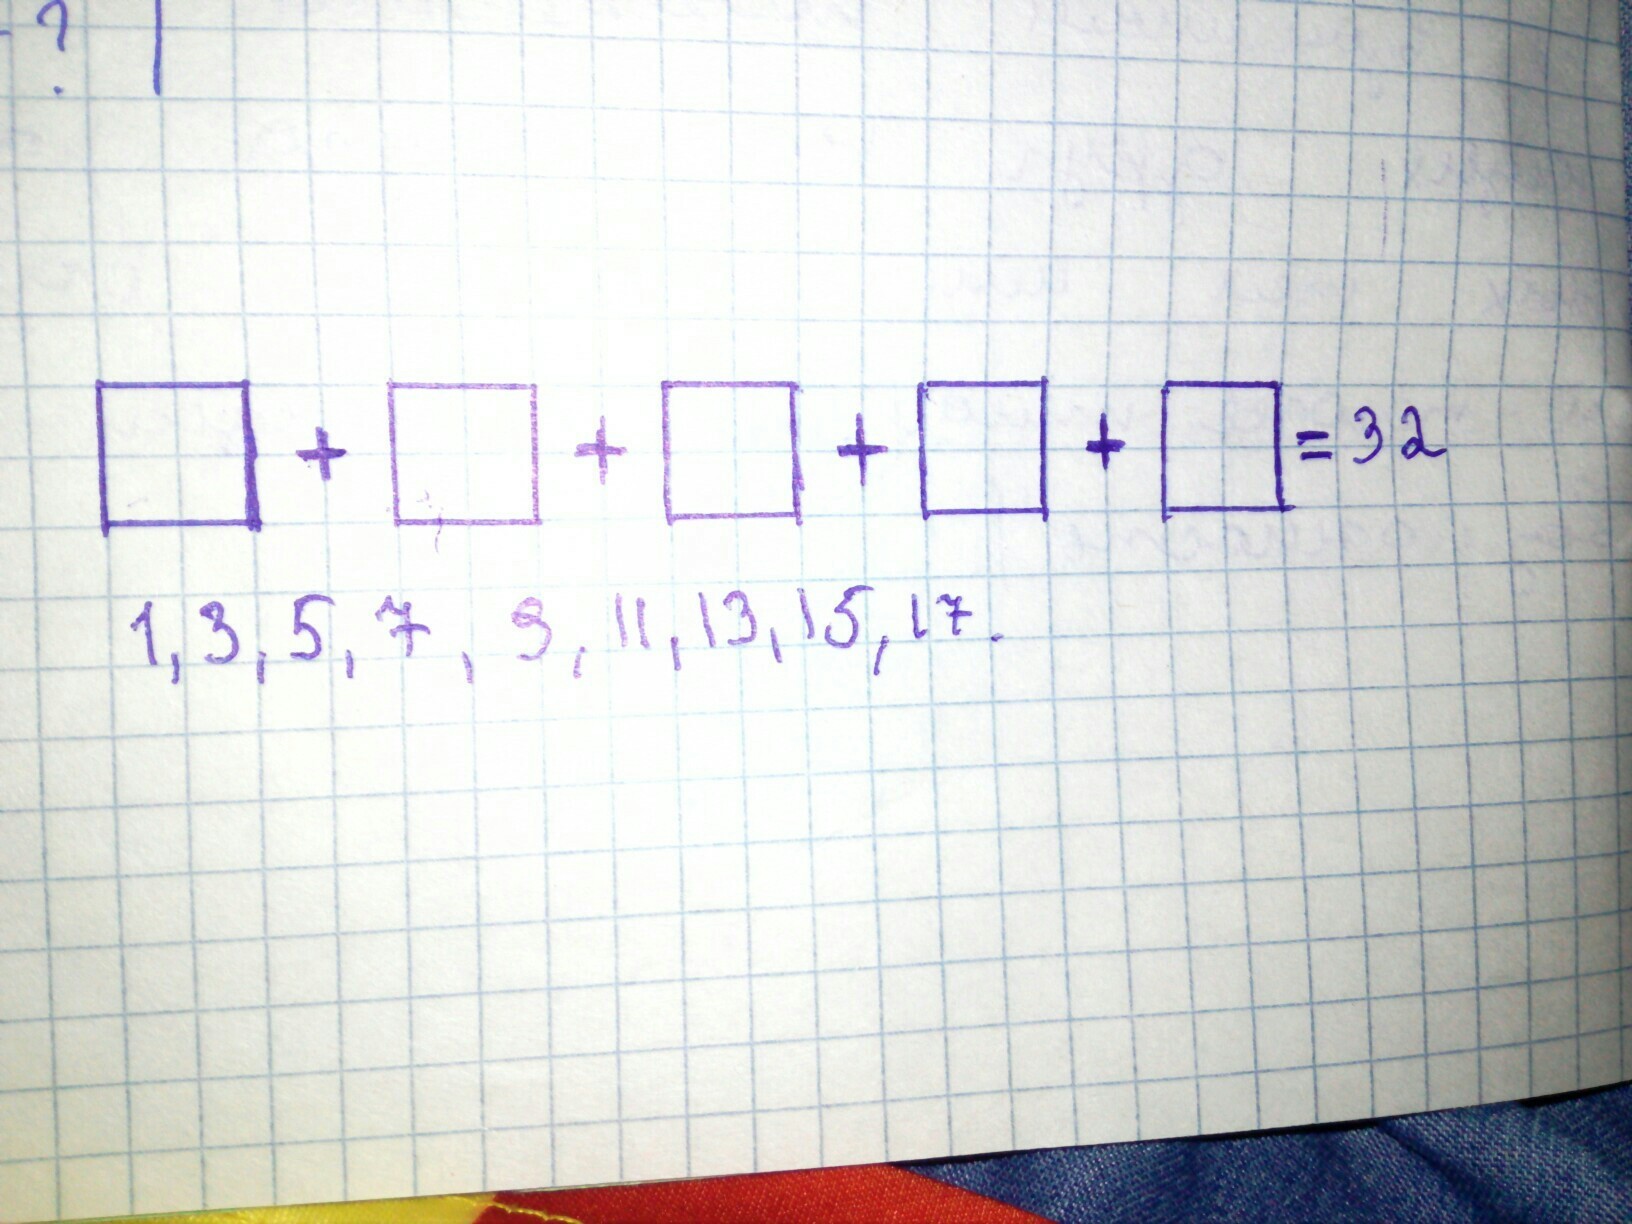 - ?
□ + □ + □ + □ + □ = 32
1, 3, 5, 7, 9, 11, 13, 15, 17.